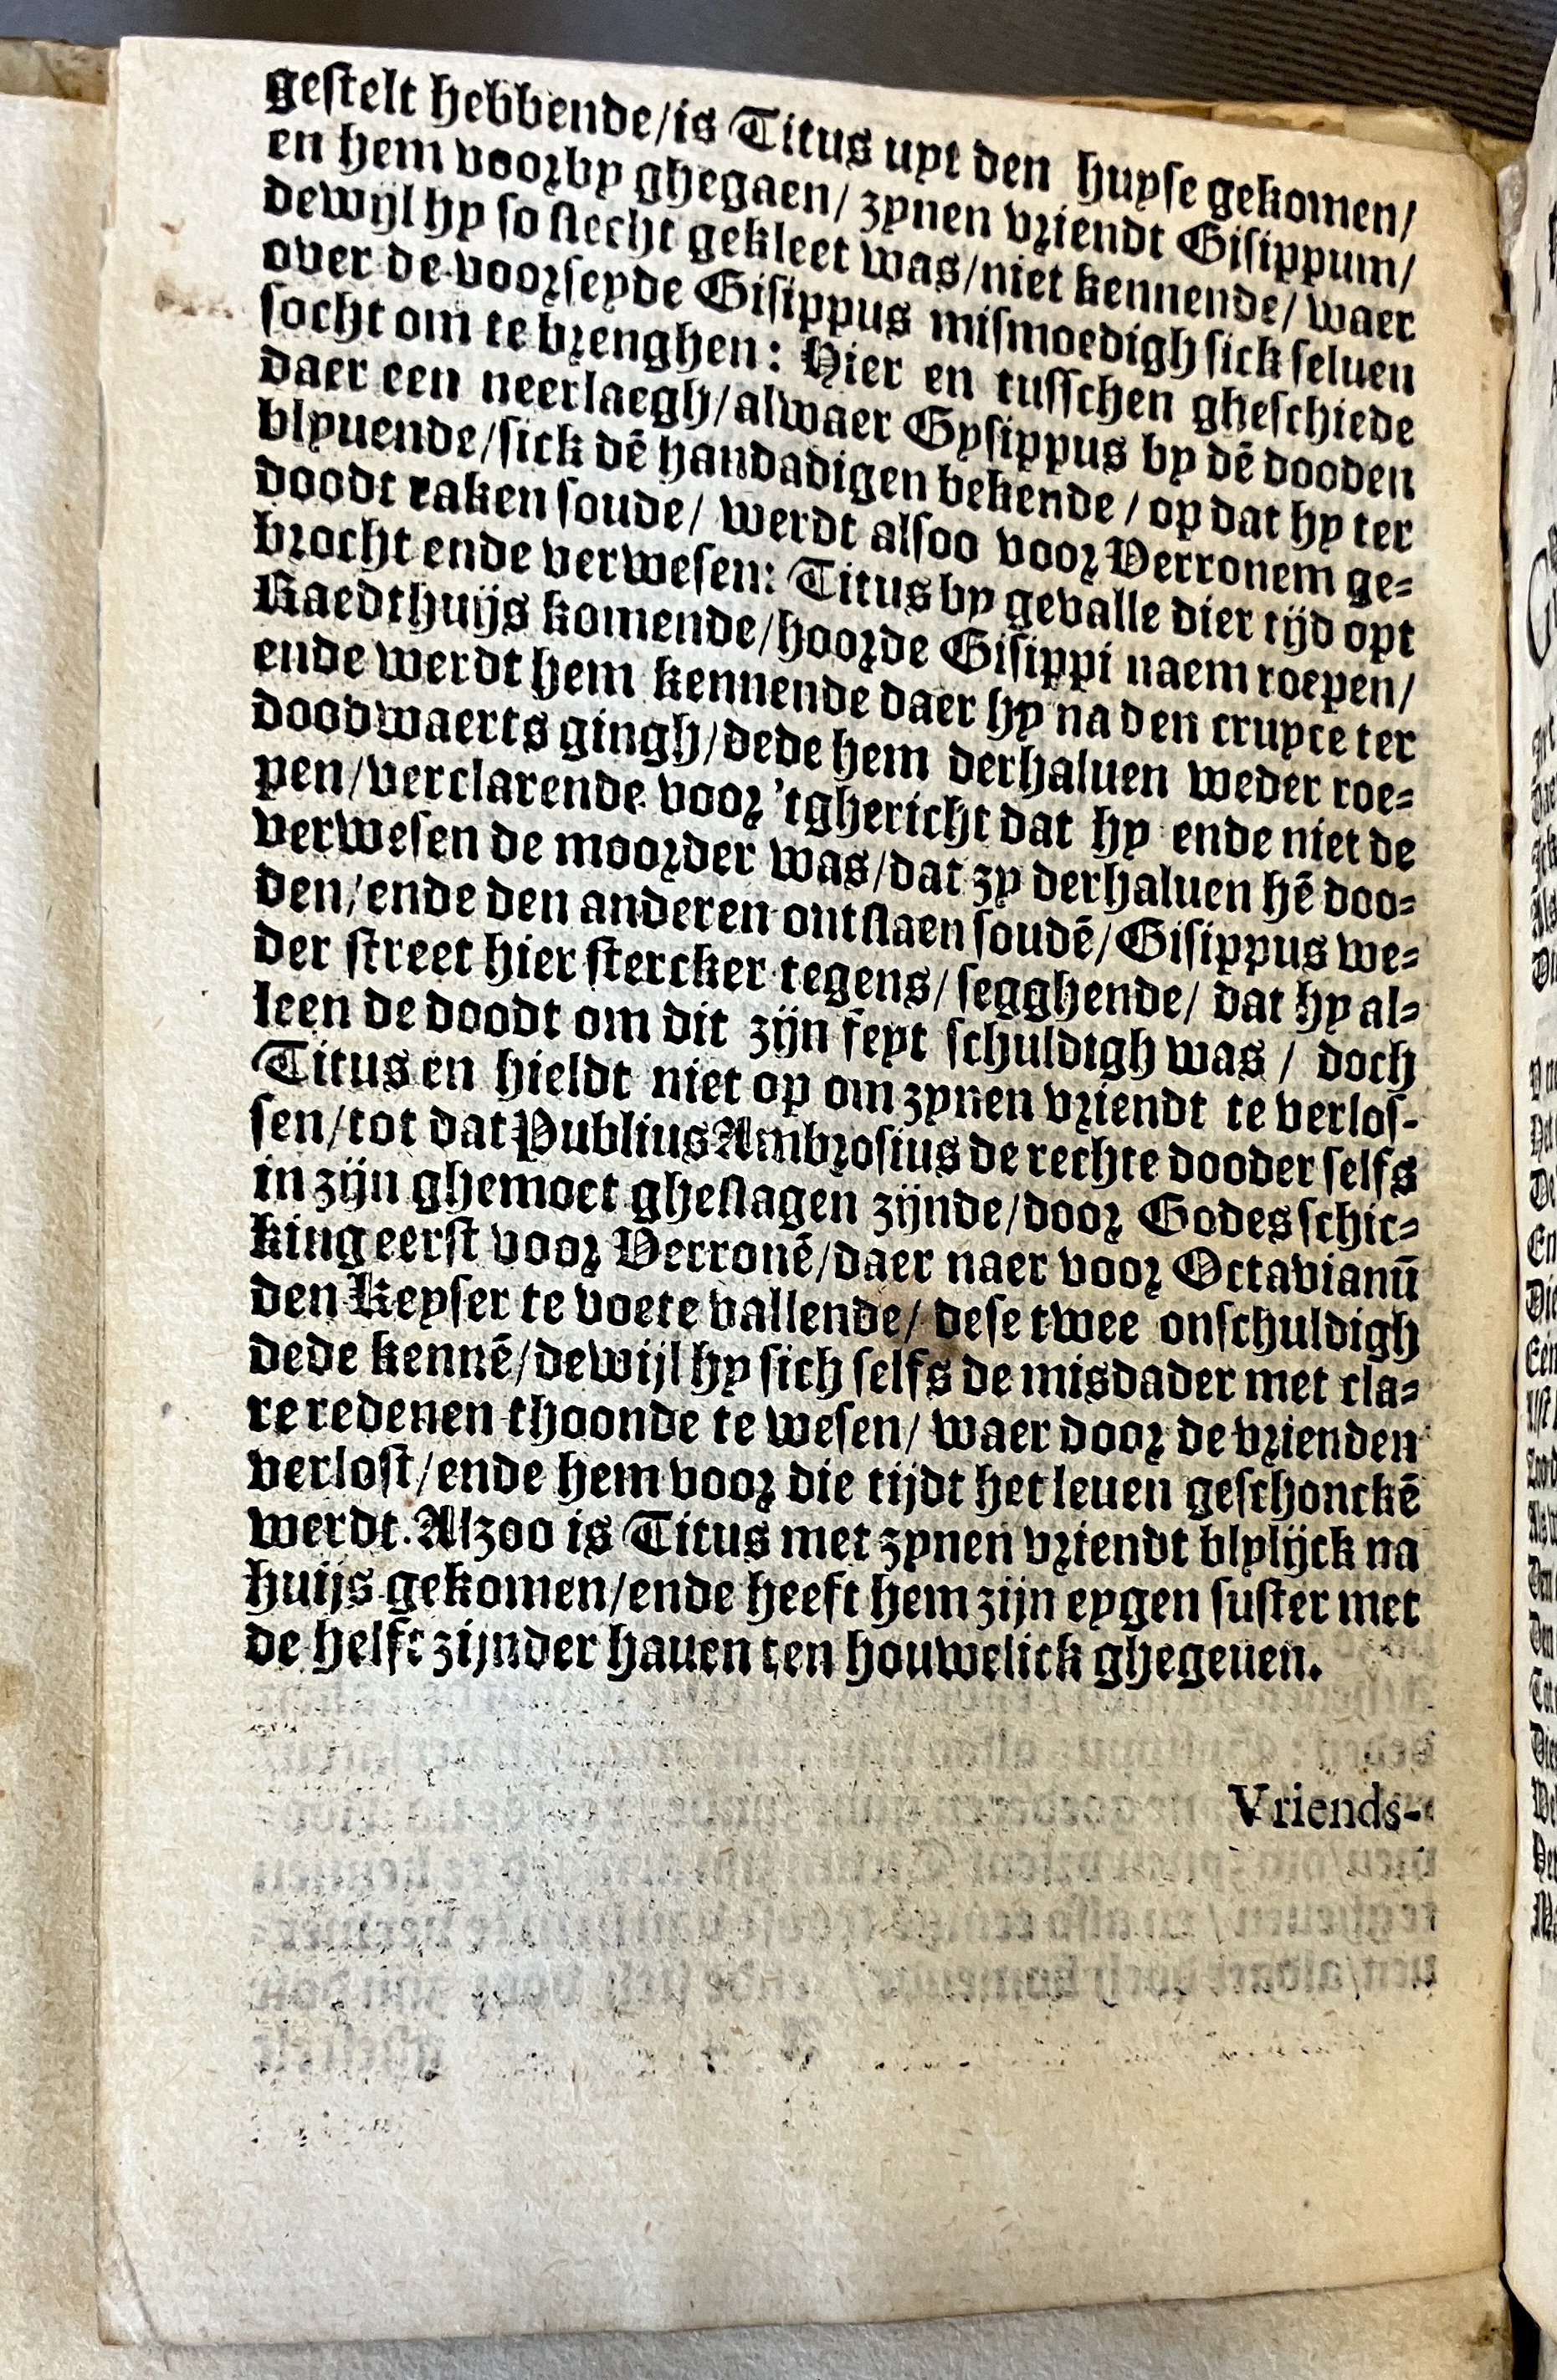 gestelt hebbende/is Titus uyt den huyse gekomen/
en hem voorby ghegaen/ zynen vriendt Gisippum/
dewijl hy so slecht gekleet was/niet kennende/ waer
over de voorseyde Gisippus mismoedigh sick seluen
socht om te brenghen: Hier en tusschen gheschiede
daer een neerlaegh/alwaer Gysippus by dē dooden
blyuende/sick dē handadigen bekende/op dat hy ter
doodt raken soude/ werdt alsoo voor Verronem ge=
brocht ende verwesen: Titus by gevalle dier tijd opt
Raedthuijs komende/hoorde Gisippi naem roepen/
ende werdt hem kennende daer hy na den cruyce ter
doodwaerts gingh/dede hem derhaluen weder roe=
pen/verclarende voor 'tghericht dat hy ende niet de
verwesen de moorder was/dat zy derhaluen hē doo=
den/ende den anderen ontslaen soudē/Gisippus we=
der street hier stercker tegens/ segghende/ dat hy al=
leen de doodt om dit zijn feyt schuldigh was / doch
Titus en hieldt niet op om zynen vriendt te verlos-
sen/tot dat Publius Ambrosius de rechte dooder selfs
in zijn ghemoet gheslagen zijnde/door Godes schic=
king eerst voor Verronē/daer naer voor Octavianū
den Keyser te voete vallende/ dese twee onschuldigh
dede kennē/dewijl hy sich selfs de misdader met cla=
re redenen thoonde te wesen/ waer door de vrienden
verlost/ende hem voor die tijdt het leuen geschonckē
werdt. Alzoo is Titus met zynen vriendt blylijck na
huijs gekomen/ende heeft hem zijn eygen suster met
de helft zijnder hauen ten houwelick ghegeuen.
Vriends-